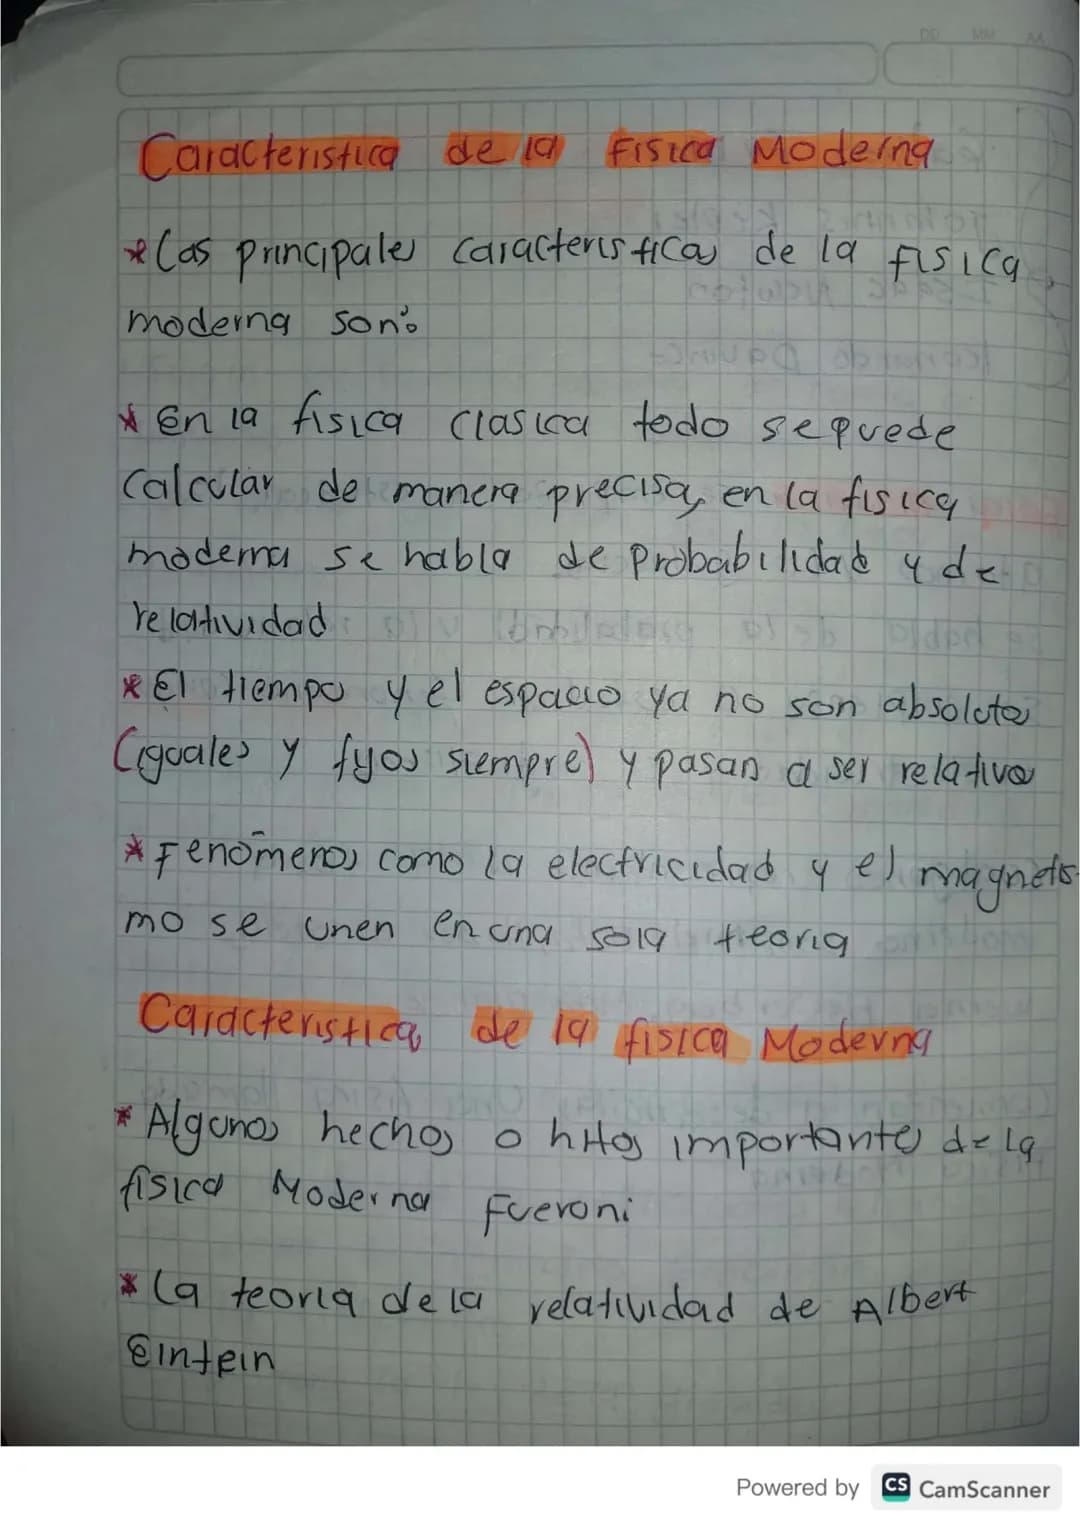 DD MM AA
Caracteristica de la Fisica Moderna
* Las principales caracteristicas de la fisica
moderna son:
* En la fisica clasica todo se puede
calcular de manera precisa, en la fisica
moderna se habla de probabilidad y de
relatividad
* El tiempo y el espacio ya no son absolutos
(iguales y fijos siempre) y pasan a ser relativos
* Fenomenos como la electricidad y el magnetis-
mo se unen en una sola teoria
Caracteristica de la fisica Moderna
* Algunos hechos o hitos importantes de la
fisica Moderna Fueron:
* La teoria de la relatividad de Albert
Eintein
Powered by CS CamScanner